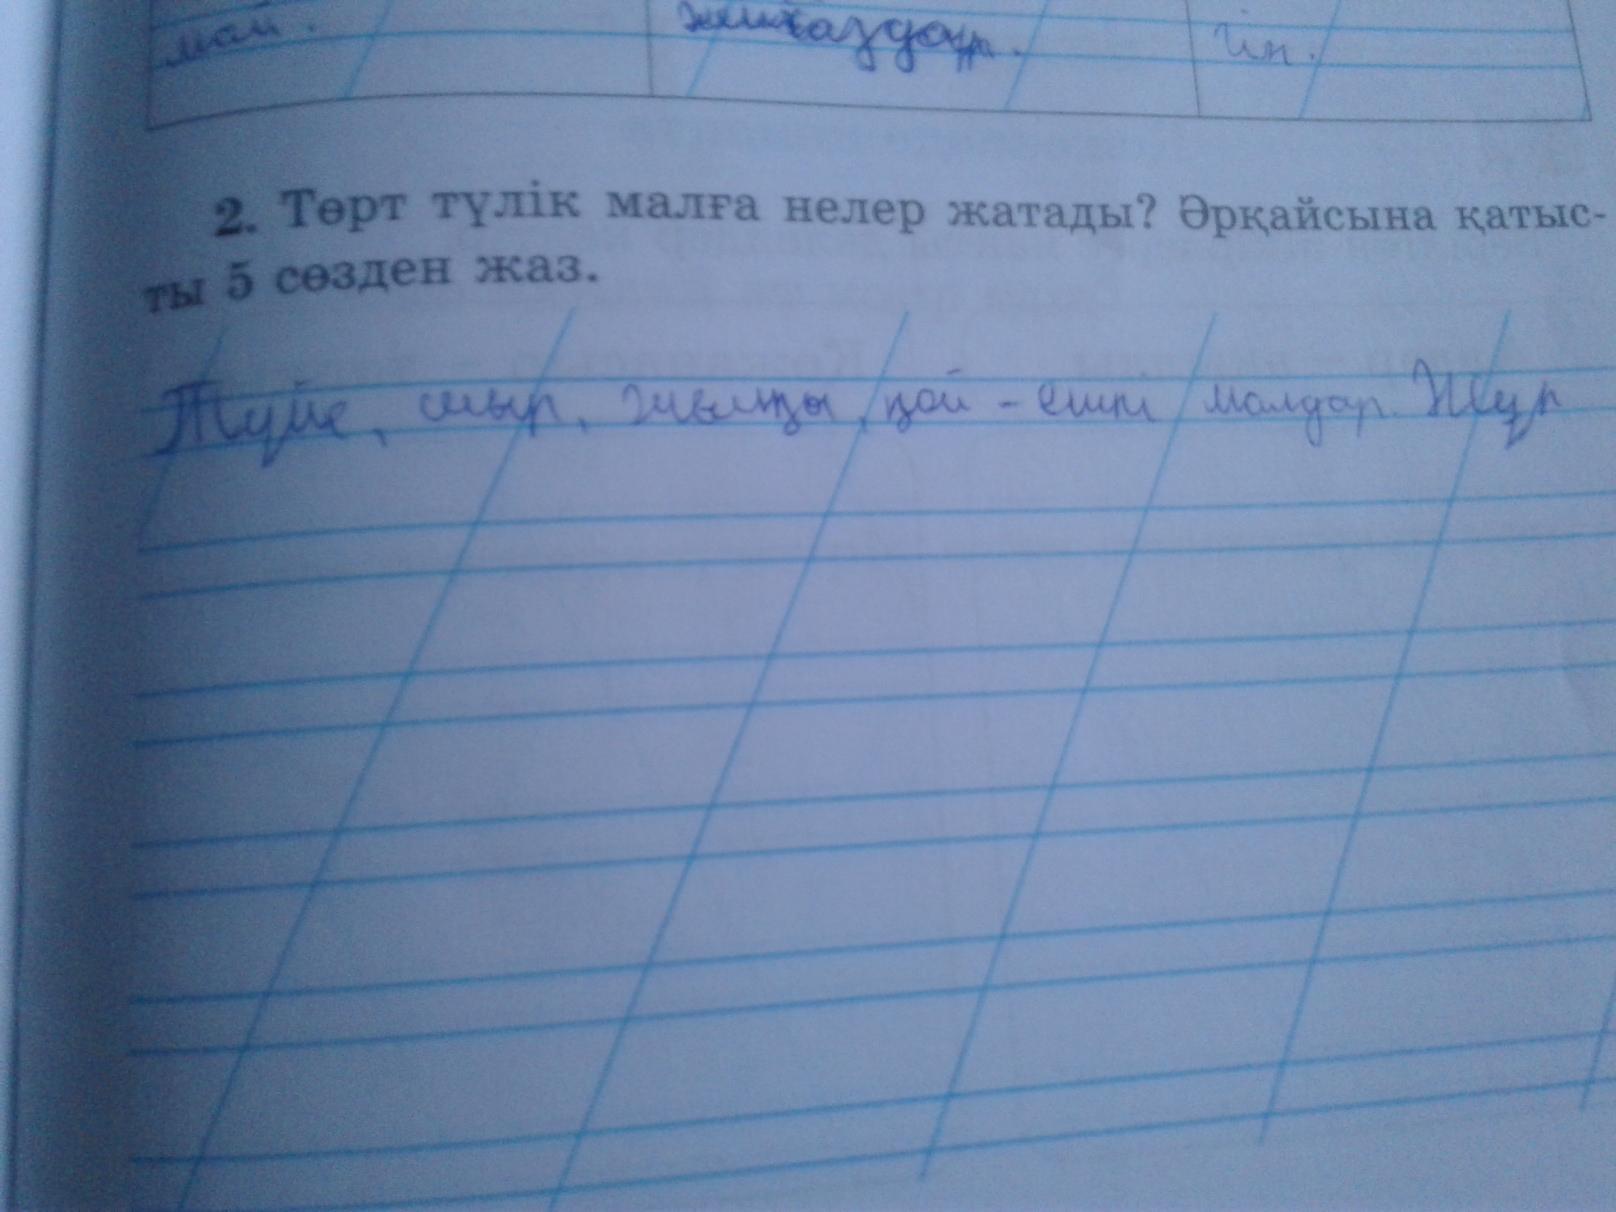 май.
жилхаздар.
йін.
2. Төрт түлік малға нелер жатады? Әрқайсына қатыс-
ты 5 сөзден жаз.
Түйе, сиыр, жылқы, қой - ешкі малдар. Жүр